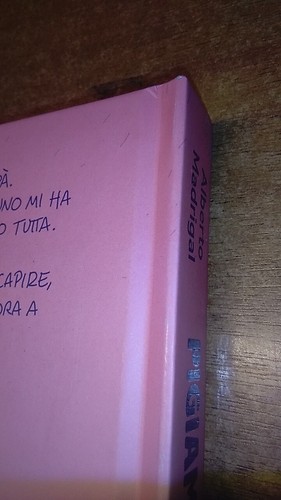 À.
UNO MI HA
O TUTTA.
CAPIRE,
ORA A
Alberto
Madrigal